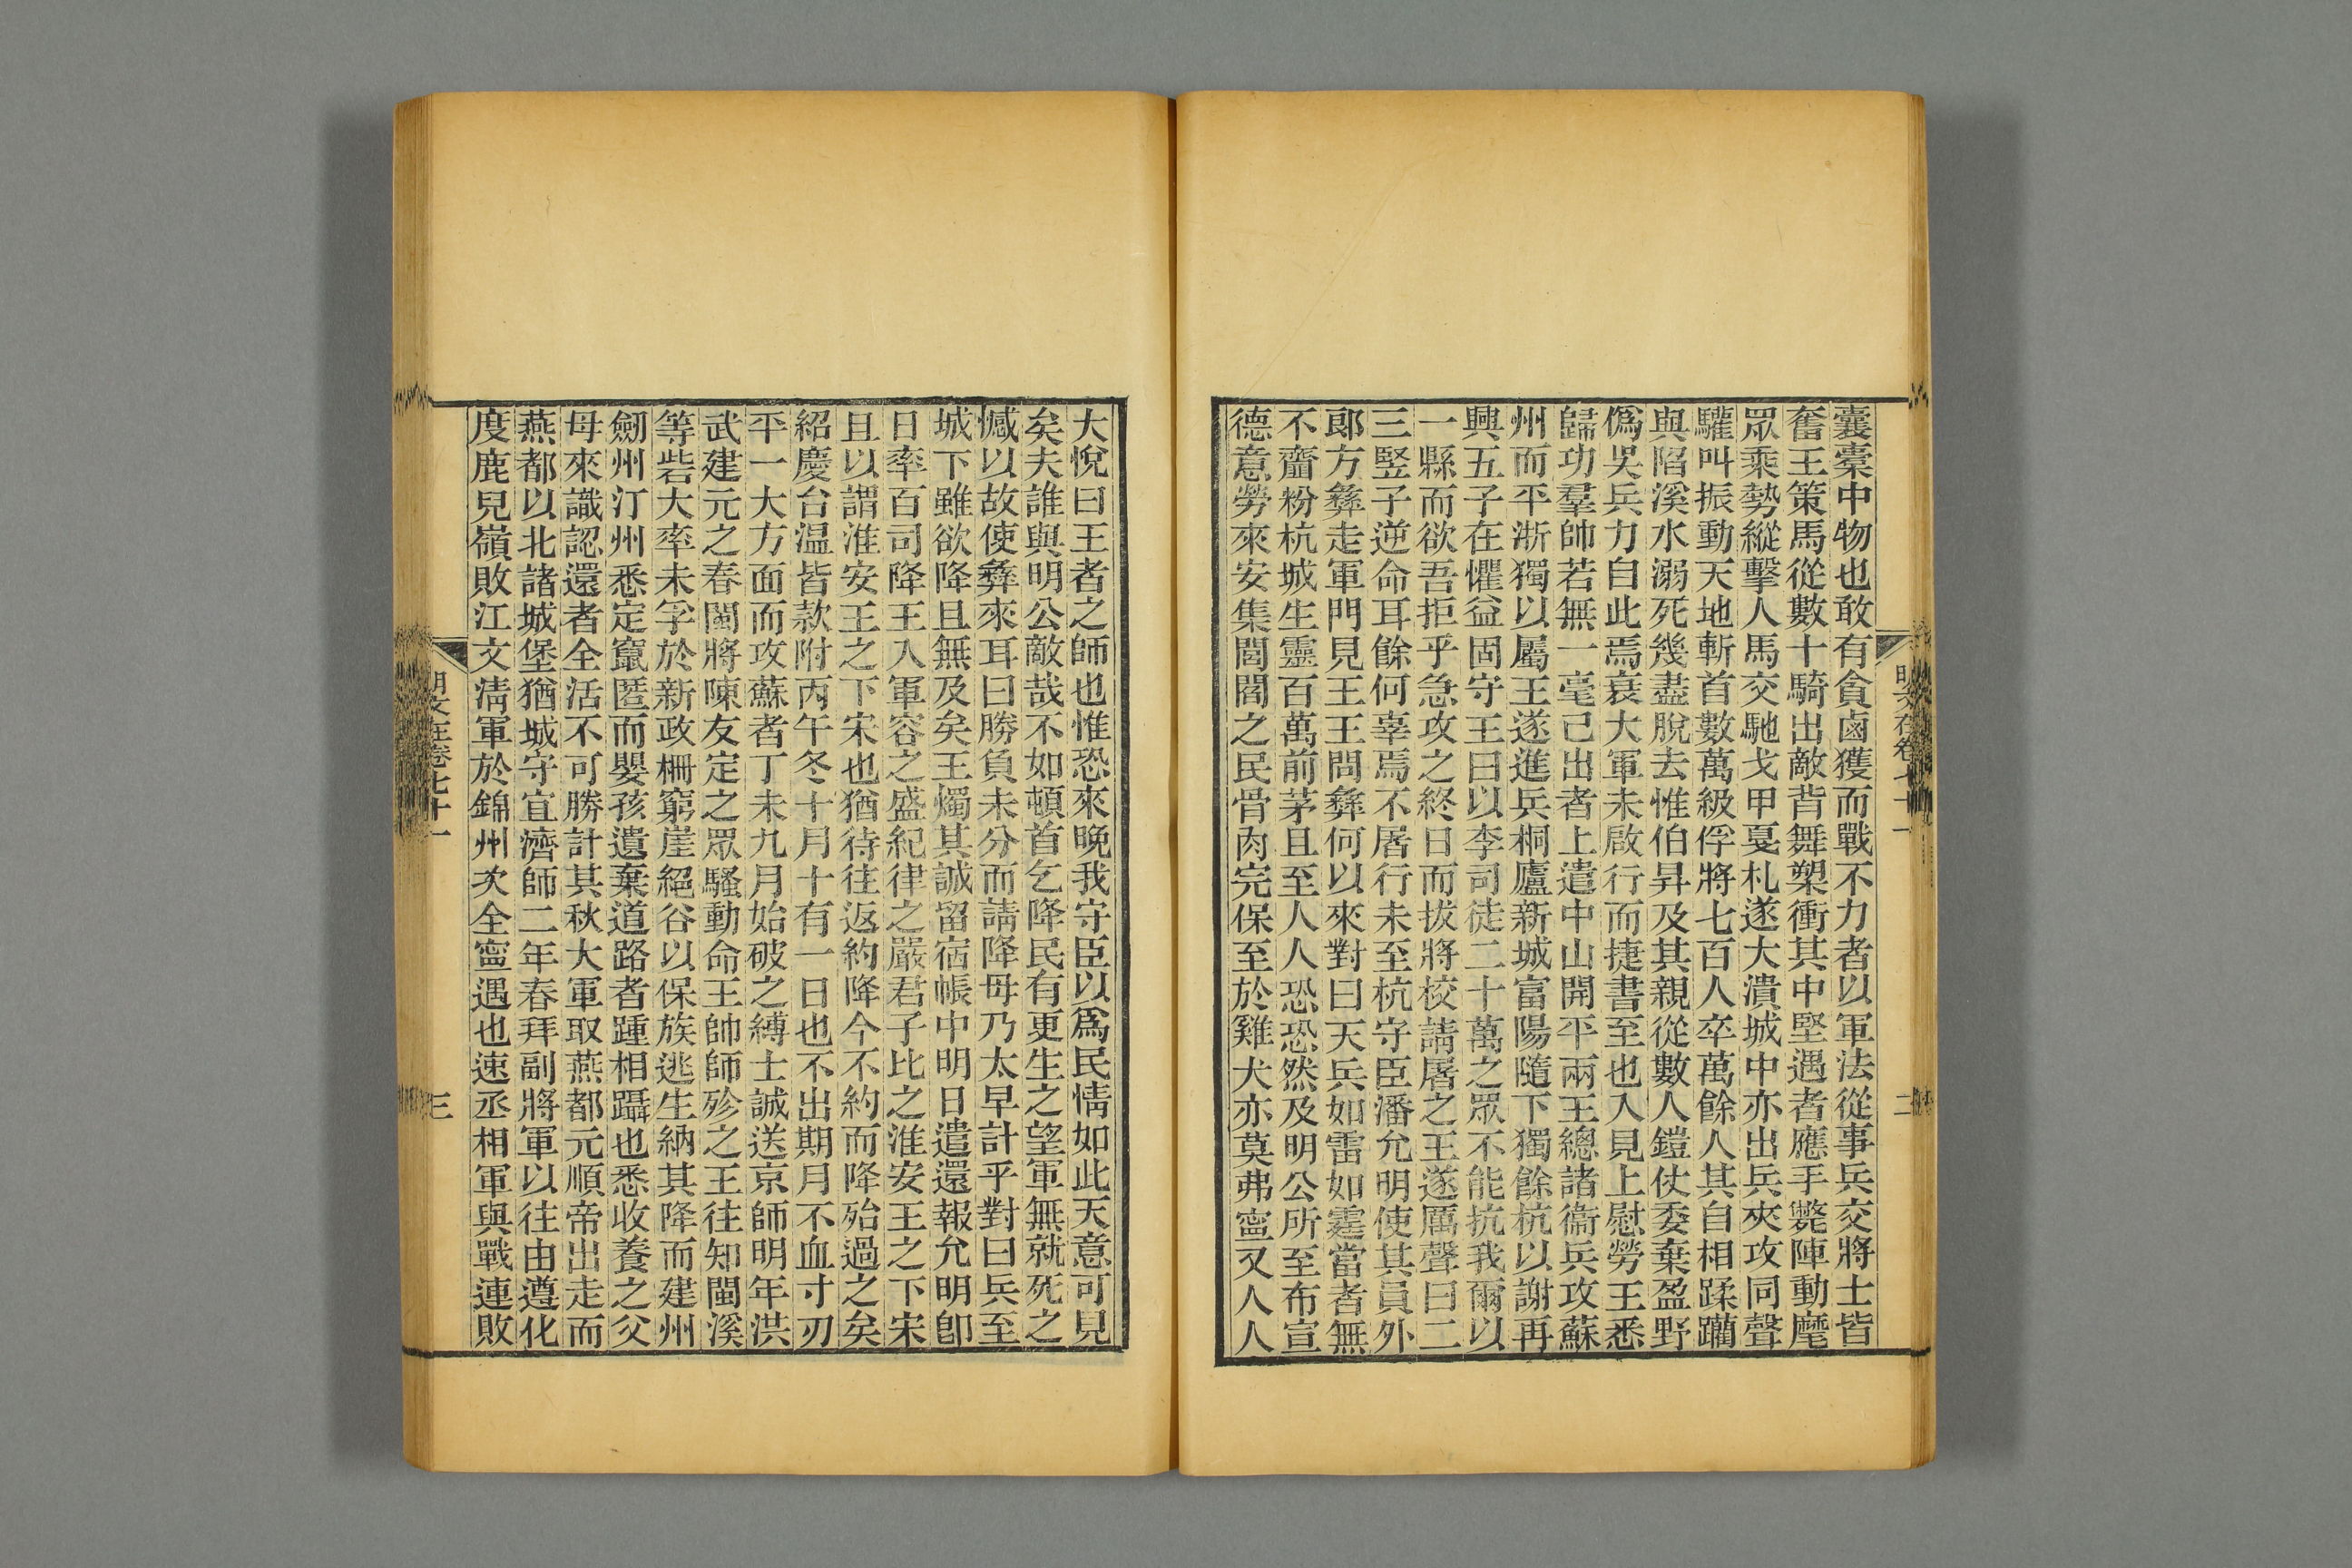 囊橐中物也敢有貪鹵獲而戰不力者以軍法從事兵交將士皆
奮王策馬從數十騎出敵背舞槊衝其中堅遇者應手斃陣動麾
眾乘勢縱擊人馬交馳戈甲戛札遂大潰城中亦出兵夾攻同聲
驩叫振動天地斬首數萬級俘將七百人卒萬餘人其自相蹂躪
與陷溪水溺死幾盡脫去惟伯昇及其親從數人鎧仗委棄盈野
偽吳兵力自此焉衰大軍未啟行而捷書至也入見上慰勞王悉
歸功羣帥若無一毫己出者上遣中山開平兩王總諸衞兵攻蘇
州而平浙獨以屬王遂進兵桐廬新城富陽隨下獨餘杭以謝再
興五子在懼益固守王曰以李司徒二十萬之眾不能抗我爾以
一縣而欲吾拒乎急攻之終日而拔將校請屠之王遂厲聲曰二
三竪子逆命耳餘何辜焉不屠行未至杭守臣潘允明使其員外
郞方彝走軍門見王王問彝何以來對曰天兵如雷如霆當者無
不齏粉杭城生靈百萬前茅且至人人恐恐然及明公所至布宣
德意勞來安集閭閻之民骨肉完保至於雞犬亦莫弗寧又人人
明文在卷七十一
二
大悅曰王者之師也惟恐來晚我守臣以爲民情如此天意可見
矣夫誰與明公敵哉不如頓首乞降民有更生之望軍無就死之
憾以故使彝來耳曰勝負未分而請降毋乃太早計乎對曰兵至
城下雖欲降且無及矣王燭其誠留宿帳中明日遣還報允明卽
日率百司降王入軍容之盛紀律之嚴君子比之淮安王之下宋
且以謂淮安王之下宋也猶待往返約降今不約而降殆過之矣
紹慶台温皆款附丙午冬十月十有一日也不出期月不血寸刃
平一大方面而攻蘇者丁未九月始破之縛士誠送京師明年洪
武建元之春閩將陳友定之眾騷動命王帥師殄之王往知閩溪
等砦大率未孚於新政柵窮崖絕谷以保族逃生納其降而建州
劒州汀州悉定竄匿而嬰孩遺棄道路者踵相躡也悉收養之父
母來識認還者全活不可勝計其秋大軍取燕都元順帝出走而
燕都以北諸城堡猶城守宜濟師二年春拜副將軍以往由遵化
度鹿兒嶺敗江文淸軍於錦州次全寧遇也速丞相軍與戰連敗
明文在卷七十一
三